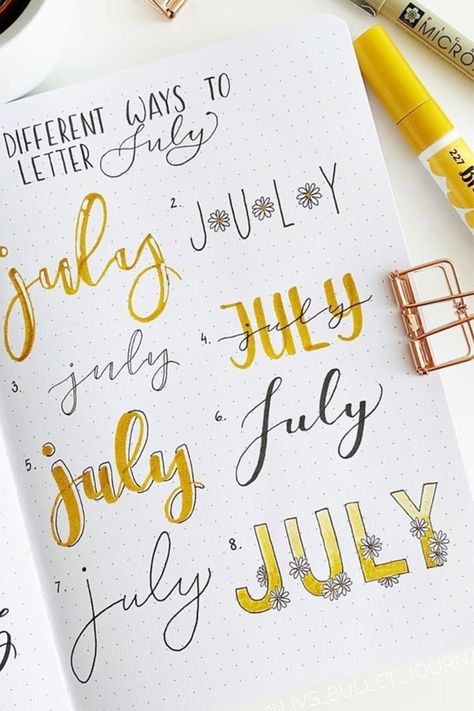 DIFFERENT WAYS TO
LETTER July
july
2. J·U·L·Y
3. july
4. JULY
july
5. july
6. July
7. july
8. JULY
MICRON
227